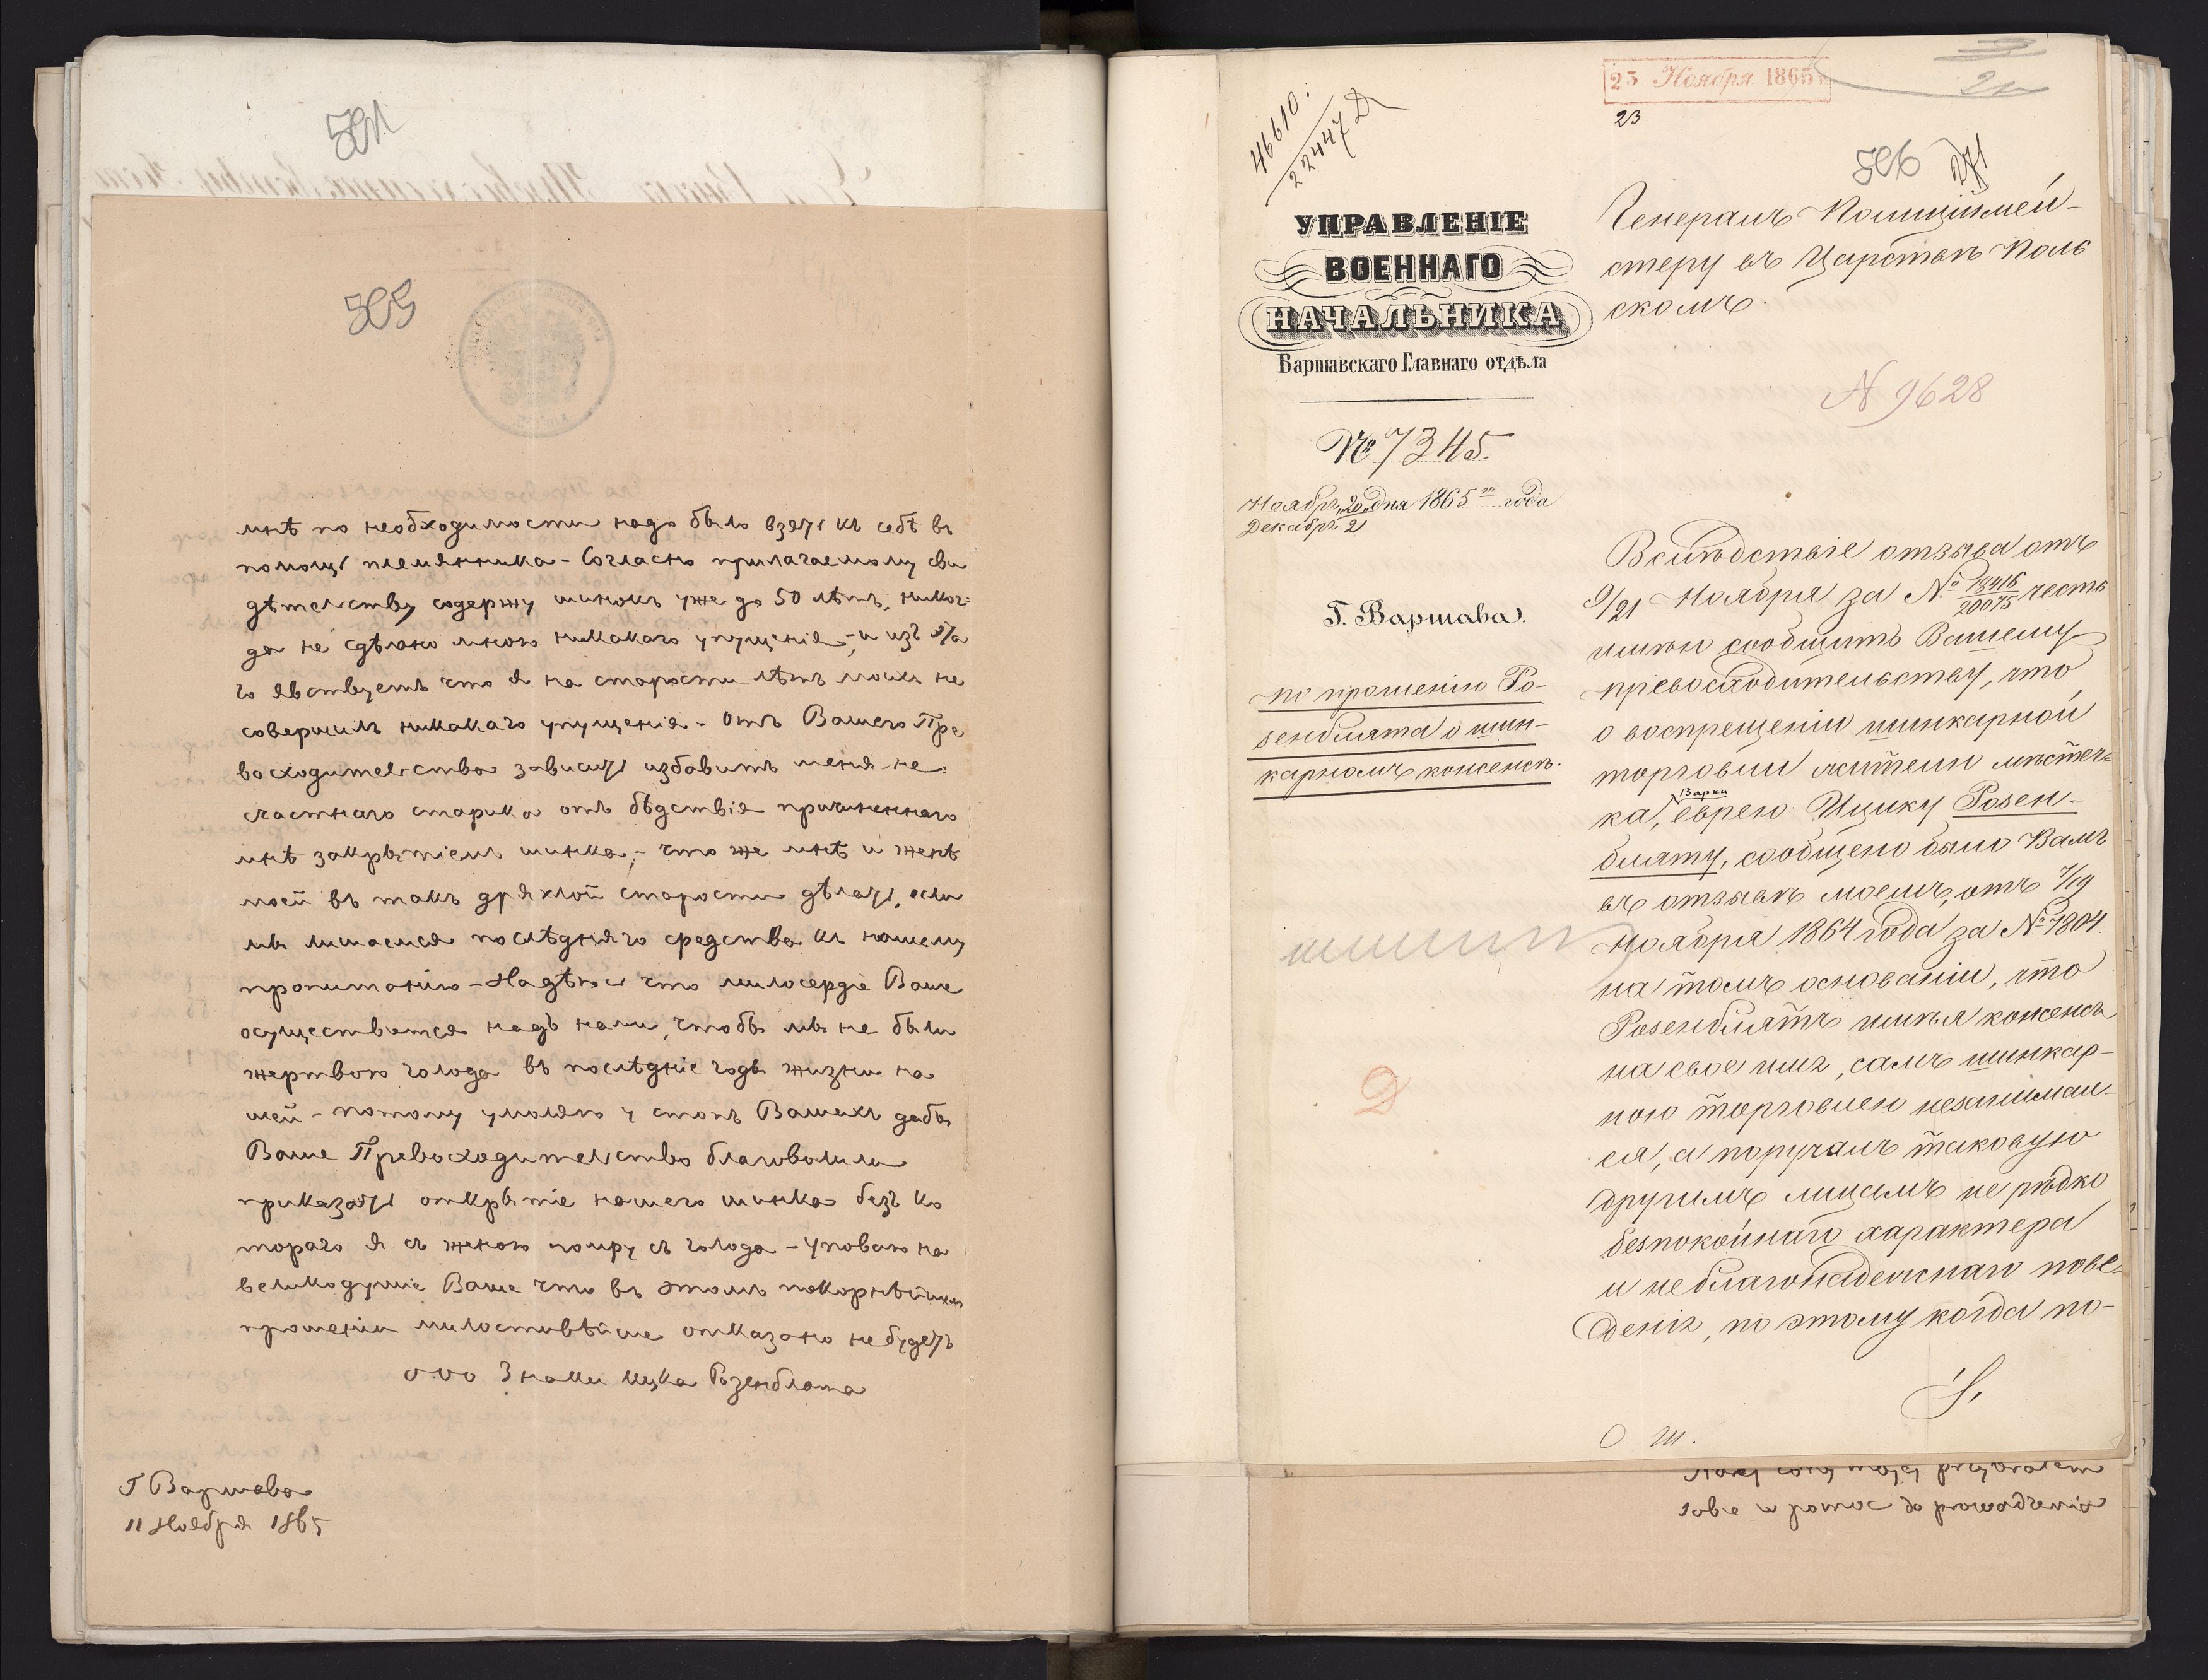 501
505
мнѣ по необходимости надо было взять къ себѣ въ
помощь племянника - Согласно прилагаемому сви
дѣтельству содержу шинокъ уже до 50 лѣтъ, никог=
да не сдѣлано мною никакаго упущенія - и изъ эта
го явствуетъ что я на старости лѣтъ моихъ не
совершилъ никакаго упущенія - Отъ Вашего Пре
восходительства зависитъ избавить меня не=
счастнаго старика отъ бѣдствія причиненнаго
мнѣ закрытіемъ шинка; - что же мнѣ и женѣ
моей въ такъ дряхлой старости дѣлать, если
мы лишаемся послѣдняго средства къ нашему
пропитанію - Надѣюсь что милосердіе Ваше
осуществится надъ нами, чтобы мы не были
жертвою голода въ послѣдніе годы жизни на
шей - потому умоляю у стопъ Вашихъ дабы
Ваше Превосходительство благоволили
приказать открытіе нашего шинка безъ ко
тораго я съ женою помру съ голода - Уповаю на
великодушіе Ваше что въ этомъ покорнѣйшемъ
прошеніи милостивѣйше отказано не будетъ
ооо Знаки Ицка Розенблата
Г Варшава
11 Ноября 1865
23 Ноября 1865
23
46610.
22447 Д
506 271
УПРАВЛЕНІЕ
ВОЕННАГО
НАЧАЛЬНИКА
Варшавскаго Главнаго отдѣла
№ 7345.
Ноября 20 дня 1865 го года
Декабря 2
Г. Варшава.
по прошенію Ро-
зенблята о шин-
карномъ консенсѣ.
Генералъ Полиціймей-
стеру въ Царствѣ Поль
скомъ.
N 9628
Вслѣдствіе отзыва отъ
9/21 Ноября за № 18416/20075 честь
имѣю сообщить Вашему
превосходительству, что
о воспрещеніи шинкарной
торговли жителю мѣстеч=
ка Варки, еврею Ицику Розен-
бляту, сообщено было Вамъ
въ отзывѣ моемъ, отъ 7/19
Ноября 1864 года за № 7804.
на томъ основаніи, что
Розенблятъ имѣя консенсъ
на свое имя, самъ шинкар-
ною торговлею незанимал-
ся, а поручалъ таковую
другимъ лицамъ не рѣдко
безпокойнаго характера
и неблагонадежнаго пове-
денія, по этому когда по-
Д